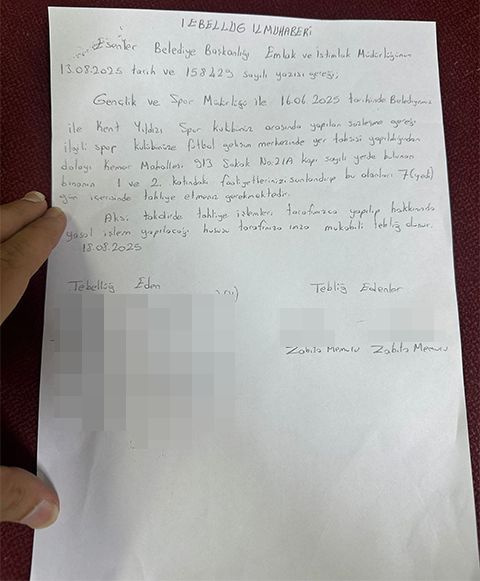 TEBELLÜĞ İLMUHABERİ
Esenler Belediye Başkanlığı Emlak ve İstimlak Müdürlüğünün
13.08.2025 tarih ve 158429 sayılı yazısı gereği;
Gençlik ve Spor Müdürlüğü ile 16.06.2025 tarihinde Belediyemiz
ile Kent Yıldızı Spor kulübünüz arasında yapılan sözleşme gereği
ilgili spor kulübünüze futbol gelişim merkezinde yer tahsisi yapıldığından
dolayı Kemer Mahallesi 913 Sokak No:21A kapı sayılı yerde bulunan
binanın 1 ve 2. katındaki faaliyetlerinizi sonlandırıp bu alanları 7 (yedi)
gün içersinde tahliye etmeniz gerekmektedir.
Aksi takdirde tahliye işlemleri tarafımızca yapılıp hakkınızda
yasal işlem yapılacağı hususu tarafınıza imza mukabili tebliğ olunur.
18.08.2025
Tebellüğ Eden
Tebliğ Edenler
Zabıta Memuru Zabıta Memuru